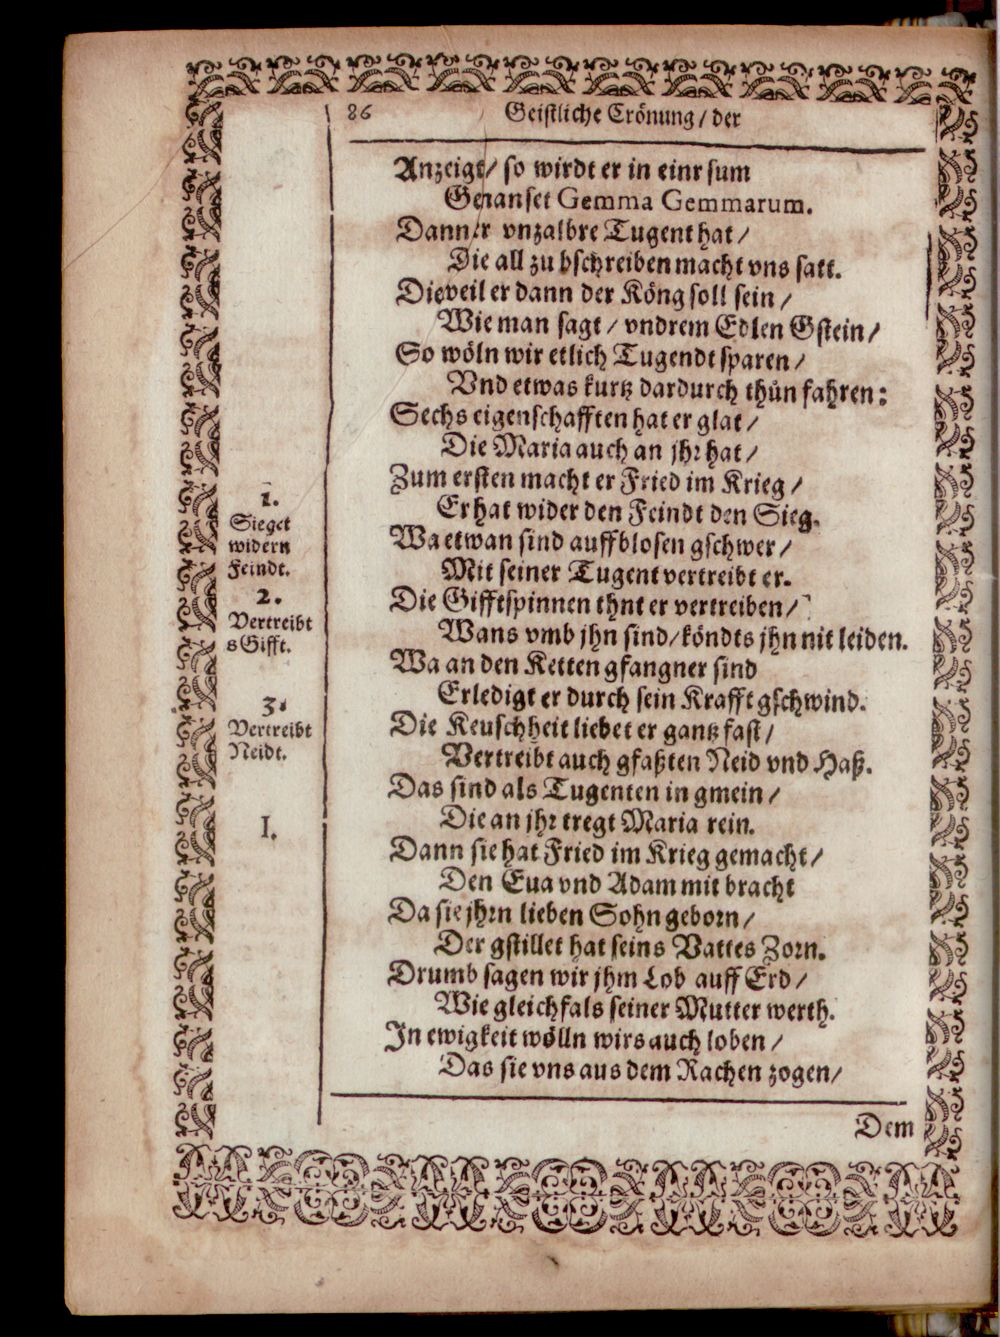 86 Geistliche Crönung/ der
Anzeigt/ so wirdt er in einr sum
Genanset Gemma Gemmarum.
Danner vnzalbre Tugent hat/
Die all zu bschreiben macht vns satt.
Dieweil er dann der Köng soll sein/
Wie man sagt/ vndrem Edlen Gstein/
So wöln wir etlich Tugendt sparen/
Vnd etwas kurtz dardurch thůn fahren:
Sechs eigenschafften hat er glat/
Die Maria auch an jhr hat/
Zum ersten macht er Fried im Krieg/
Er hat wider den Feindt den Sieg.
Wa etwan sind auffblosen gschwer/
Mit seiner Tugent vertreibt er.
Die Gifftspinnen thnt er vertreiben/
Wans vmb jhn sind/ köndts jhn nit leiden.
Wa an den Ketten gfangner sind
Erledigt er durch sein Krafft gschwind.
Die Keuschheit liebet er gantz fast/
Vertreibt auch gfaßten Neid vnd Haß.
Das sind als Tugenten in gmein/
Die an jhr tregt Maria rein.
Dann sie hat Fried im Krieg gemacht/
Den Eua vnd Adam mit bracht
Da sie jhrn lieben Sohn geborn/
Der gstillet hat seins Vattes Zorn.
Drumb sagen wir jhm Lob auff Erd/
Wie gleichfals seiner Mutter werth.
In ewigkeit wölln wirs auch loben/
Das sie vns aus dem Rachen zogen/
Dem
1.
Sieget
widern
Feindt.
2.
Vertreibt
s Gifft.
3.
Vertreibt
Neidt.
I.